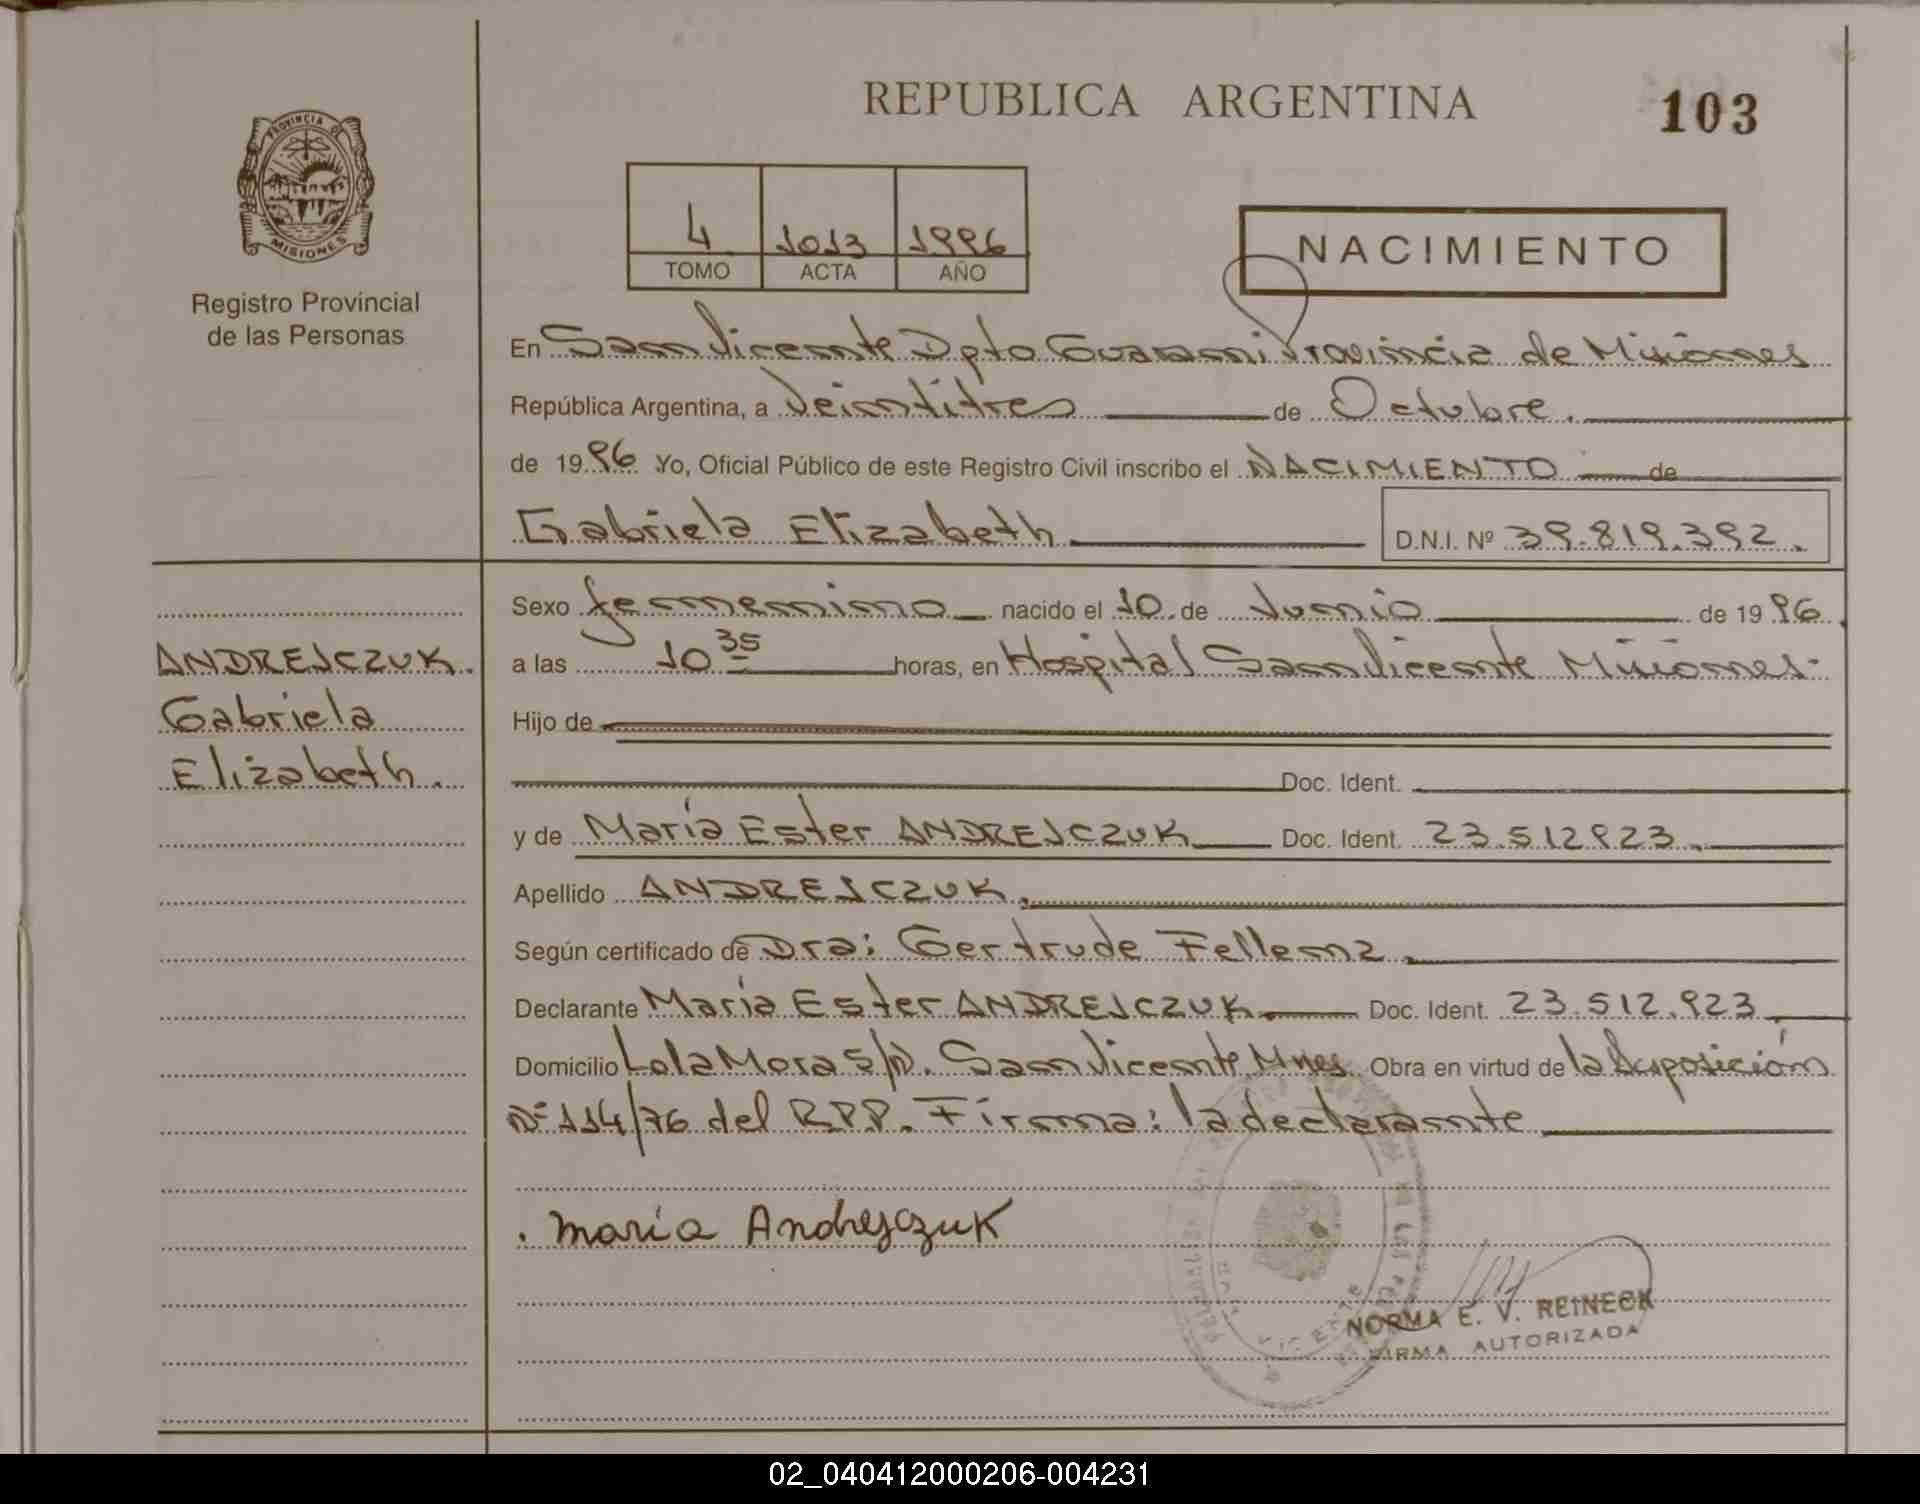 REPUBLICA ARGENTINA
103
PROVINCIA DE
MISIONES
Registro Provincial
de las Personas
4 1013 1996
TOMO ACTA AÑO
NACIMIENTO
En San Vicente Dpto Guarani Provincia de Misiones
República Argentina, a Veintitres de Octubre.
de 1996 Yo, Oficial Público de este Registro Civil inscribo el NACIMIENTO de
Gabriela Elizabeth D.N.I. Nº 39.819.392.
ANDREJCZUK.
Gabriela
Elizabeth.
Sexo femenino nacido el 10 de Junio de 1996.
a las 10 35 horas, en Hospital San Vicente Misiones-
Hijo de
Doc. Ident.
y de María Ester ANDREJCZUK Doc. Ident. 23.512.923.
Apellido ANDREJCZUK.
Según certificado de Dra: Gertrude Fellenz.
Declarante María Ester ANDREJCZUK. Doc. Ident. 23.512.923.
Domicilio Lola Mora S/N. San Vicente Mnes Obra en virtud de la Disposición
Nº 114/76 del R.P.P. Firma: la declarante
. maria Andrejczuk
NORMA E. V. REINECK
FIRMA AUTORIZADA
02_040412000206-004231